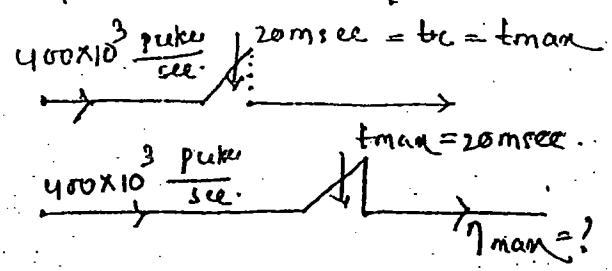 400×10³ pukes/sec. 20msec = tc = tmax
400×10³ pukes/sec. tmax = 20msec.
ηmax = ?